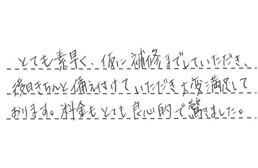 とても素早く、仮に補修までしていただき、
後日きちんと備え付けていただき大変満足して
おります。料金もとても良心的で驚きました。